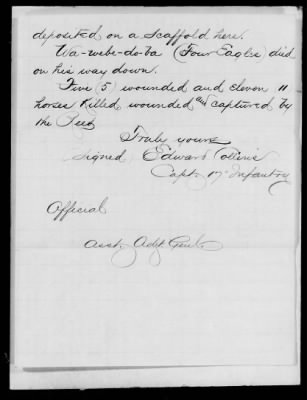 deposited on a Scaffold here.
Wa-webe-do-ba (Four Eagles) died
on his way down.
Five 5, wounded and eleven 11
horses Killed, wounded and captured by
the Rees
Truly yours
signed Edward Collins
Capt. 17" Infantry
Official
Asst. Adjt Genl.